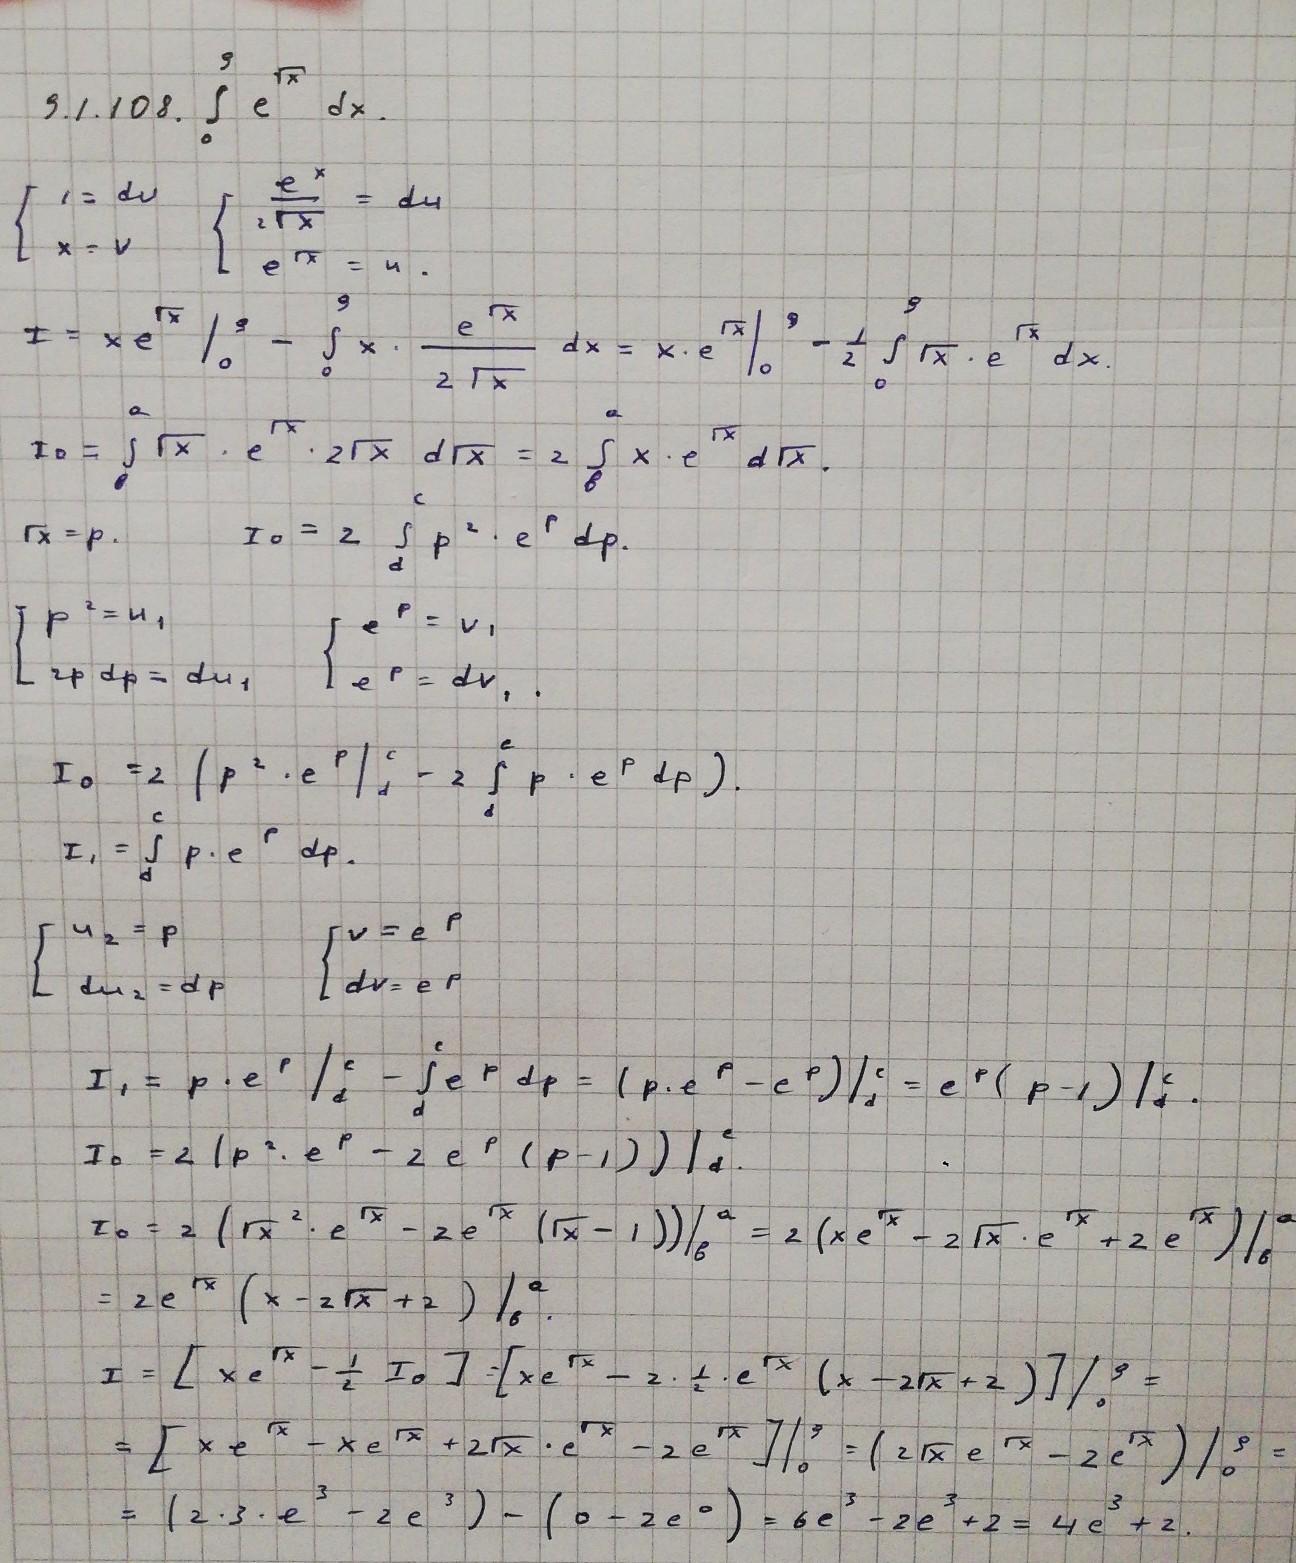 9.1.108. ∫₀⁹ e^√x dx.
{ 1 = dv  x = v  { e^x / 2√x = du  e^√x = u.
I = xe^√x |₀⁹ − ∫₀⁹ x · e^√x / 2√x dx = x·e^√x |₀⁹ − 1/2 ∫₀⁹ √x · e^√x dx.
I₀ = ∫_в^a √x · e^√x · 2√x d√x = 2 ∫_в^a x · e^√x d√x.
√x = p.  I₀ = 2 ∫_d^c p² · e^p dp.
{ p² = u₁  2p dp = du₁  { e^p = v₁  e^p = dv₁.
I₀ = 2 (p² · e^p |_d^c − 2 ∫_d^c p · e^p dp).
I₁ = ∫_d^c p · e^p dp.
{ u₂ = p  du₂ = dp  { v = e^p  dv = e^p
I₁ = p · e^p |_d^c − ∫_d^c e^p dp = (p · e^p − e^p) |_d^c = e^p (p − 1) |_d^c.
I₀ = 2 (p² · e^p − 2e^p (p − 1)) |_d^c.
I₀ = 2 (√x² · e^√x − 2e^√x (√x − 1)) |_в^a = 2 (xe^√x − 2√x · e^√x + 2e^√x) |_в^a
= 2e^√x (x − 2√x + 2) |_в^a.
I = [xe^√x − 1/2 I₀] = [xe^√x − 2 · 1/2 · e^√x (x − 2√x + 2)] |₀⁹ =
= [xe^√x − xe^√x + 2√x · e^√x − 2e^√x] |₀⁹ = (2√x e^√x − 2e^√x) |₀⁹ =
= (2 · 3 · e³ − 2e³) − (0 − 2e⁰) = 6e³ − 2e³ + 2 = 4e³ + 2.